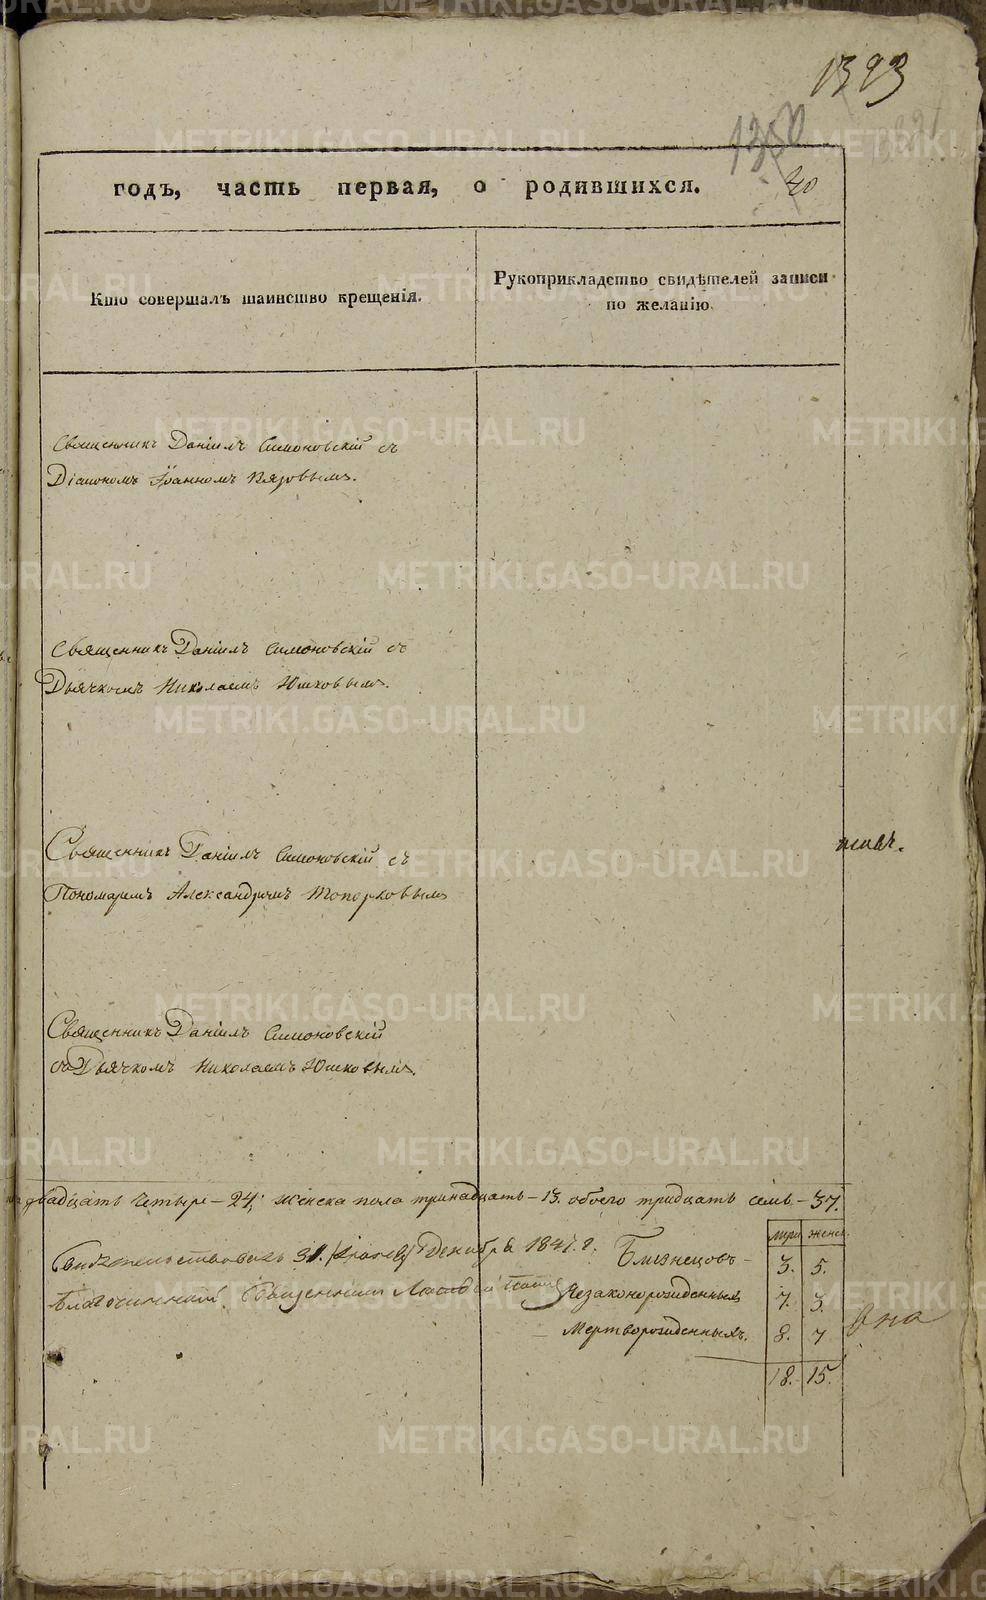 1393
1350
40
годъ, часть первая, о родившихся.
Кто совершалъ таинство крещенія.
Рукоприкладство свидѣтелей записи
по желанію.
Священникъ Даніилъ Симоновскій съ
Діакономъ Іоанномъ Вяровымъ.
Священникъ Даніилъ Симоновскій съ
Дьячкомъ Николаемъ Юшковымъ.
Священникъ Даніилъ Симоновскій съ
Пономаремъ Александромъ Топорковымъ
Священникъ Даніилъ Симоновскій
съ Дьячкомъ Николаемъ Юшковымъ.
двадцать четыре – 24, женска пола тринадцать – 13. обоего тридцать семь – 37.
муж. женс.
Свидѣтельствовалъ 31. Декабря 1847. г. Близнецовъ – 3. 5.
Благочинный Священникъ Незаконорожденныхъ 7. 3.
Мертворожденныхъ. 8. 7
18. 15.
METRIKI.GASO-URAL.RU